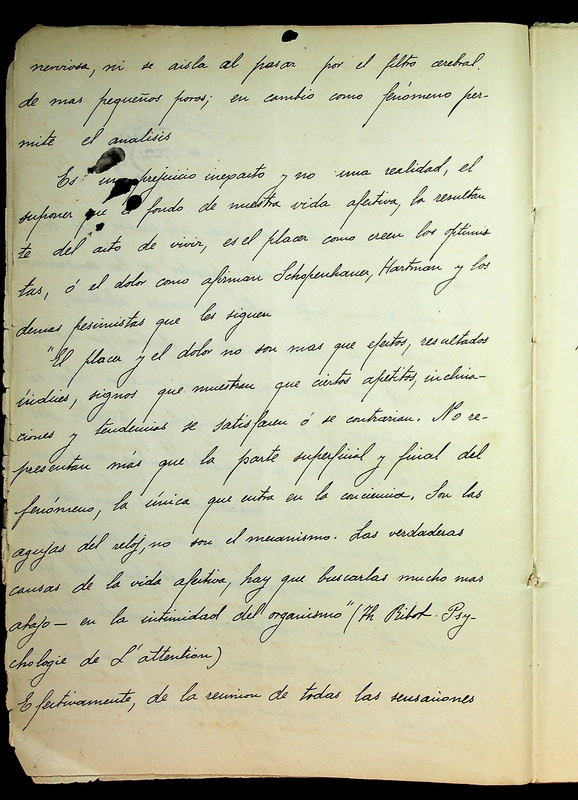 nerviosa, ni se aisla al pasar por el filtro cerebral
de mas pequeños poros; en cambio como fenómeno per-
mite el analisis
Es un prejuicio inexacto y no una realidad, el
suponer que el fondo de nuestra vida afectiva, la resultan
te del acto de vivir, es el placer como creen los optimis
tas, ó el dolor como afirman Schopenhauer, Hartman y los
demas pesimistas que les siguen
"El placer y el dolor no son mas que efectos, resultados
indices, signos que muestran que ciertos apetitos, inclina-
ciones y tendencias se satisfacen ó se contrarian. No re-
presentan más que la parte superficial y final del
fenómeno, la única que entra en la conciencia. Son las
agujas del reloj, no son el mecanismo. Las verdaderas
causas de la vida afectiva, hay que buscarlas mucho mas
abajo — en la intimidad del organismo" (Th Ribot. Psy-
chologie de L'attention)
Efectivamente, de la reunion de todas las sensaciones